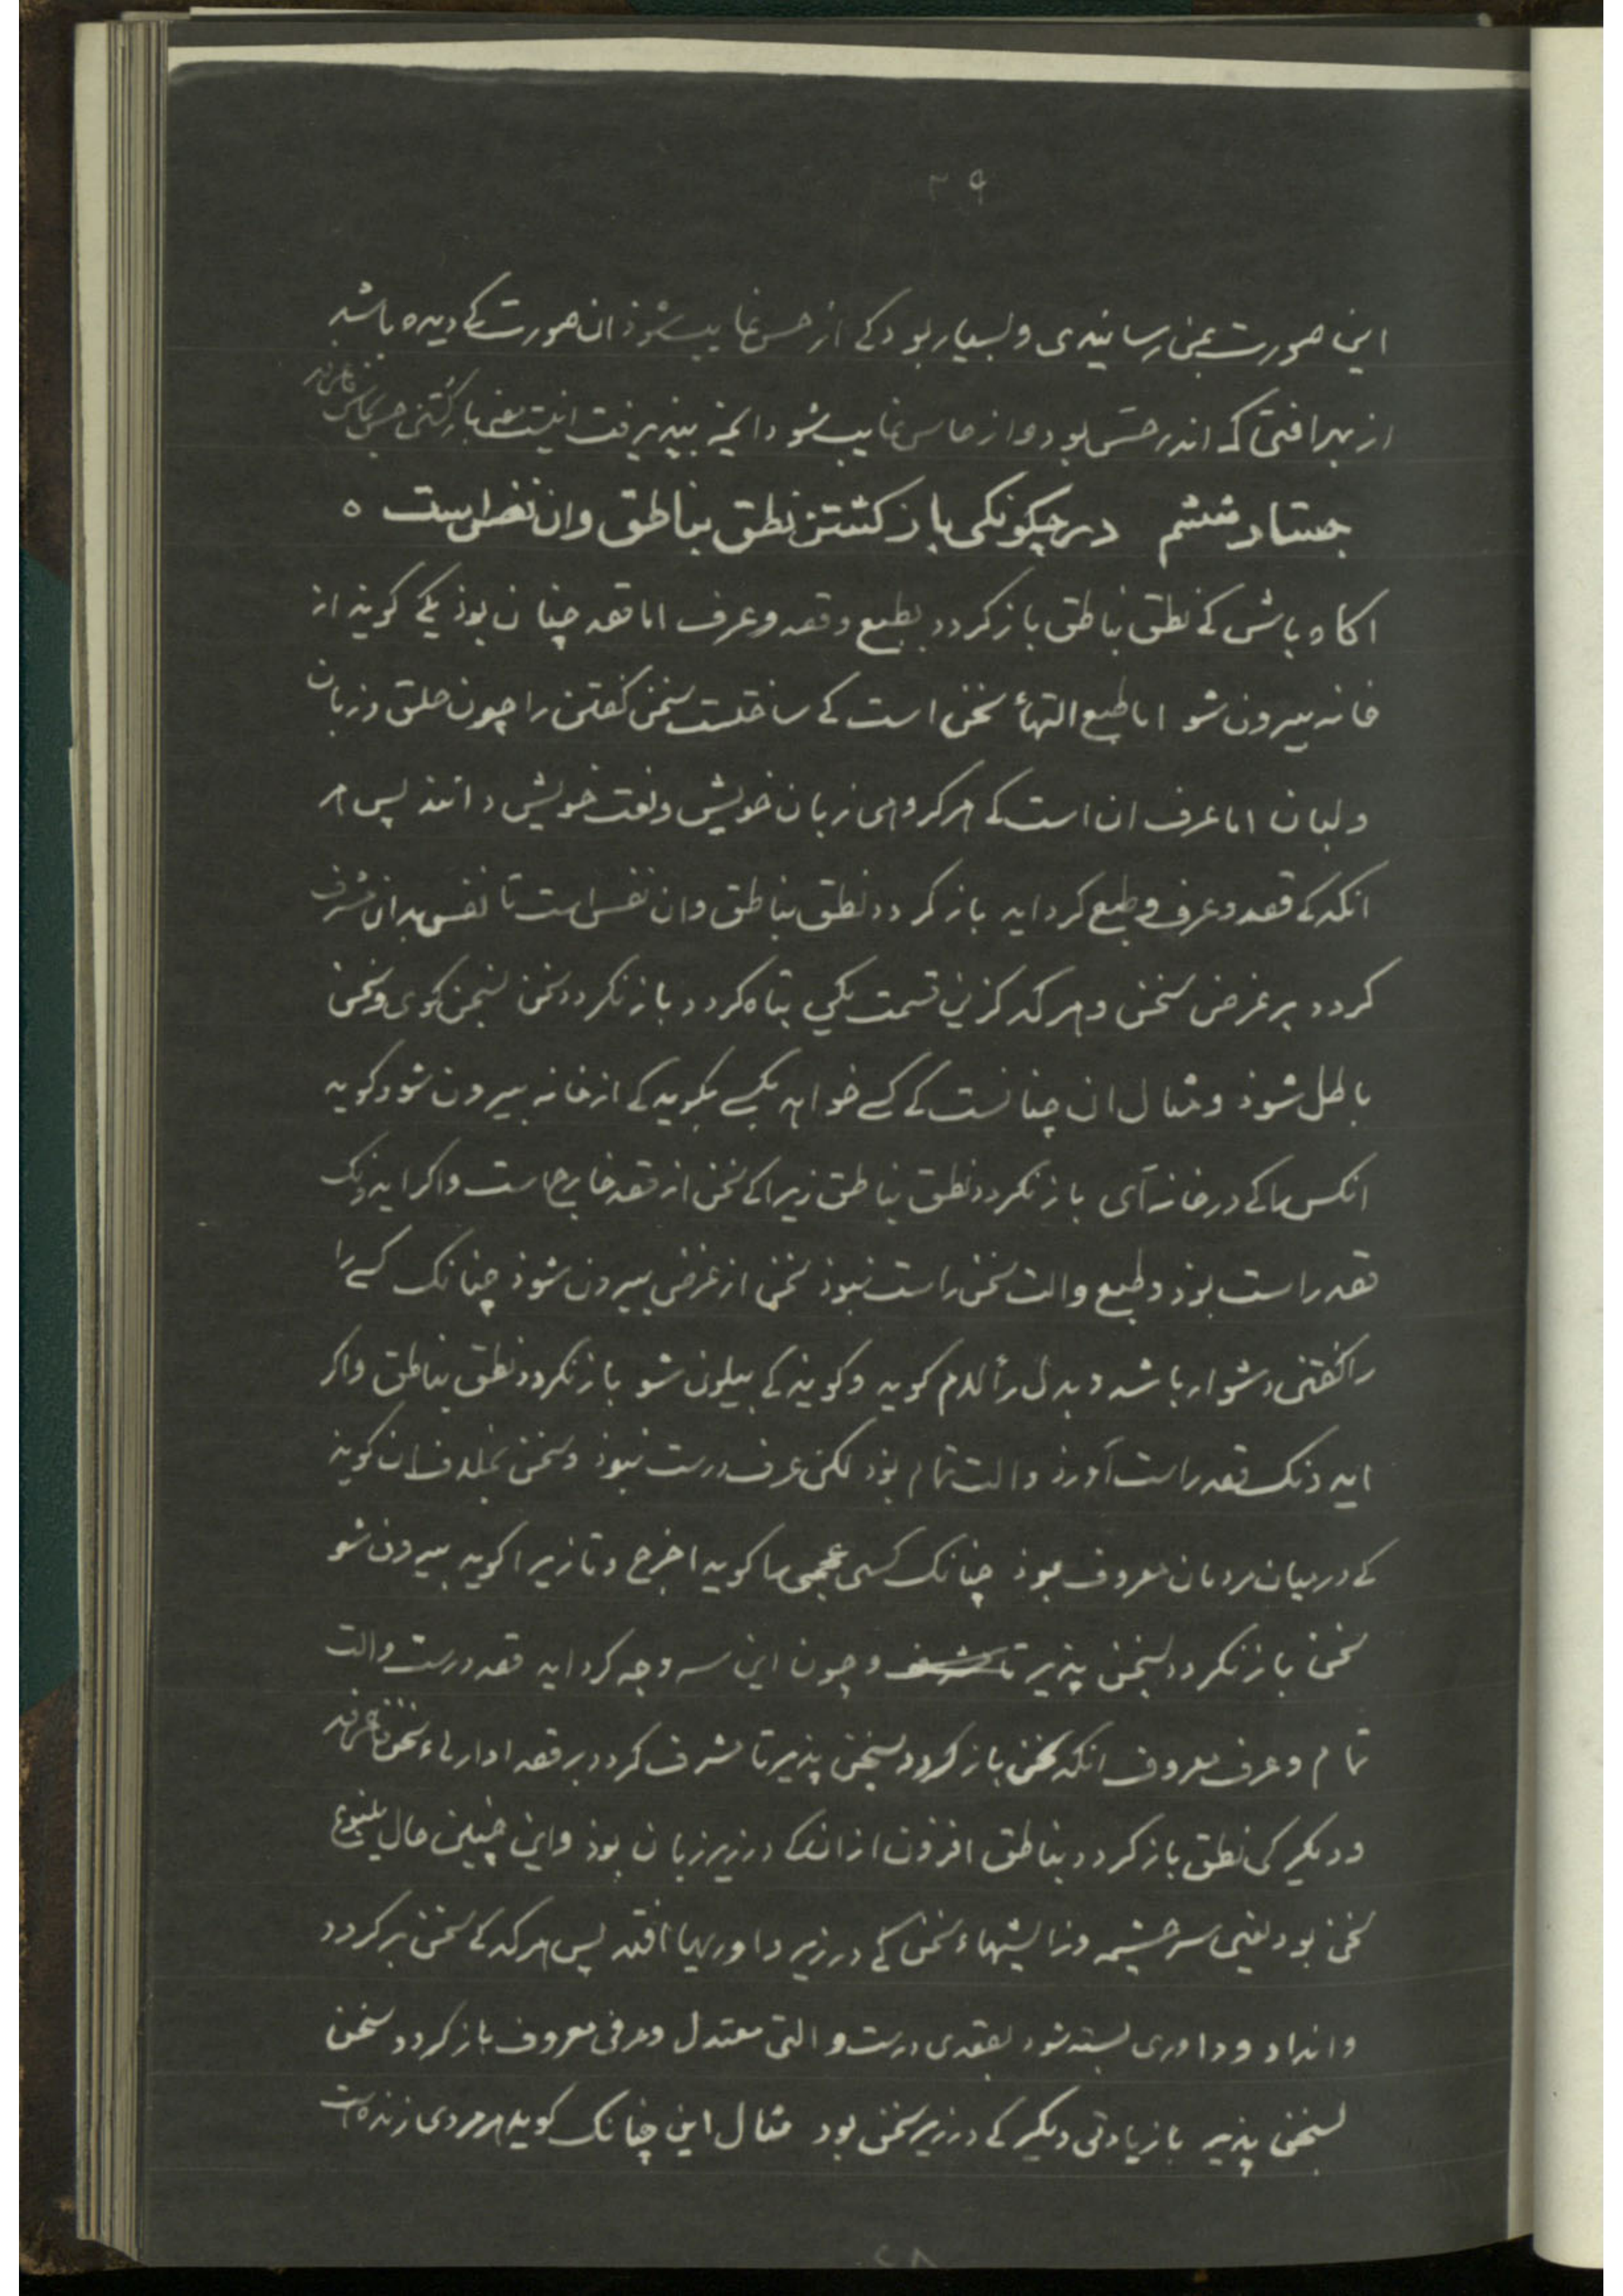 ۳۹
این صورت بمنی رسانیدی و بسیار بود کے از حس غایب شوذ ان صورت کے دیده باشد
از بهر افتی که اندر حسّ بود و از حاس غایب شود انچه بپذیرفت اینست معنی بازکشتن حس بحاس فاعرفه
جستار ششم در چکونکی باز کشتن نطق بناطق وان نفس است ه
اکاه باش کے نطق بناطق باز کردد بطبع و قصد و عرف اما قصد چنان بوذ یکے کویذ از
خانه بیرون شو اما طبع التهاء سخن است کے ساختست سخن کفتن را چون حلق و زبان
و لبان اما عرف ان است کے هر کروهی زبان خویش و لغت خویش دانند پس هر
انکه کے قصد و عرف و طبع کرد اید باز کردد نطق بناطق وان نفس است تا نفس بدان مشرف
کردد بر غرض سخن و هر که کزین قسمت یکی تباه کردد باز نکردد سخن بسخن کوی و سخن
باطل شوذ و مثال ان چنانست کے کسے خواهد بکسے بکوید کے از خانه بیرون شو و کوید
انکس را کے در خانه آی باز نکردد نطق بناطق زیرا کے سخن از قصد خارج است و اکر ایدونک
قصد راست بوذ و طبع و الت سخن راست نبوذ سخن از غرض بیرون شوذ چنانک کسے را
را کفتن دشوار باشد و بدل را لام کوید و کویذ کے بیلون شو باز نکردد نطق بناطق و اکر
ایدونک قصد راست آورذ و الت تمام بوذ لکن عرف درست نبوذ و سخن بخلاف ان کویذ
کے در میان مردمان معروف بوذ چنانک کسی عجمی را کوید اخرج و تازی را کوید بیرون شو
سخن باز نکردد بسخن پذیر تا و چون این سه وجه کرد اید قصد درست و الت
تمام و عرف معروف انکه سخن باز کردد بسخن پذیر تا مشرف کردد بر قصد سخن فاعرفه
و دیکر کی نطق باز کردد بناطق افزون از انک کے در زیر زبان بوذ و این چنین حال ینبوع
سخن بود یعنی سرچشمه و زایشهاء سخن کے در زیر داوریها افتد پس هر که کے سخن بر کردد
و انداد و داوری بسته شود بقصدی درست و التی معتدل و عرفی معروف باز کردد سخن
بسخن پذیر با زیادتی دیکر کے در زیر سخن بود مثال این چنانک کوید هر مردی زنده است